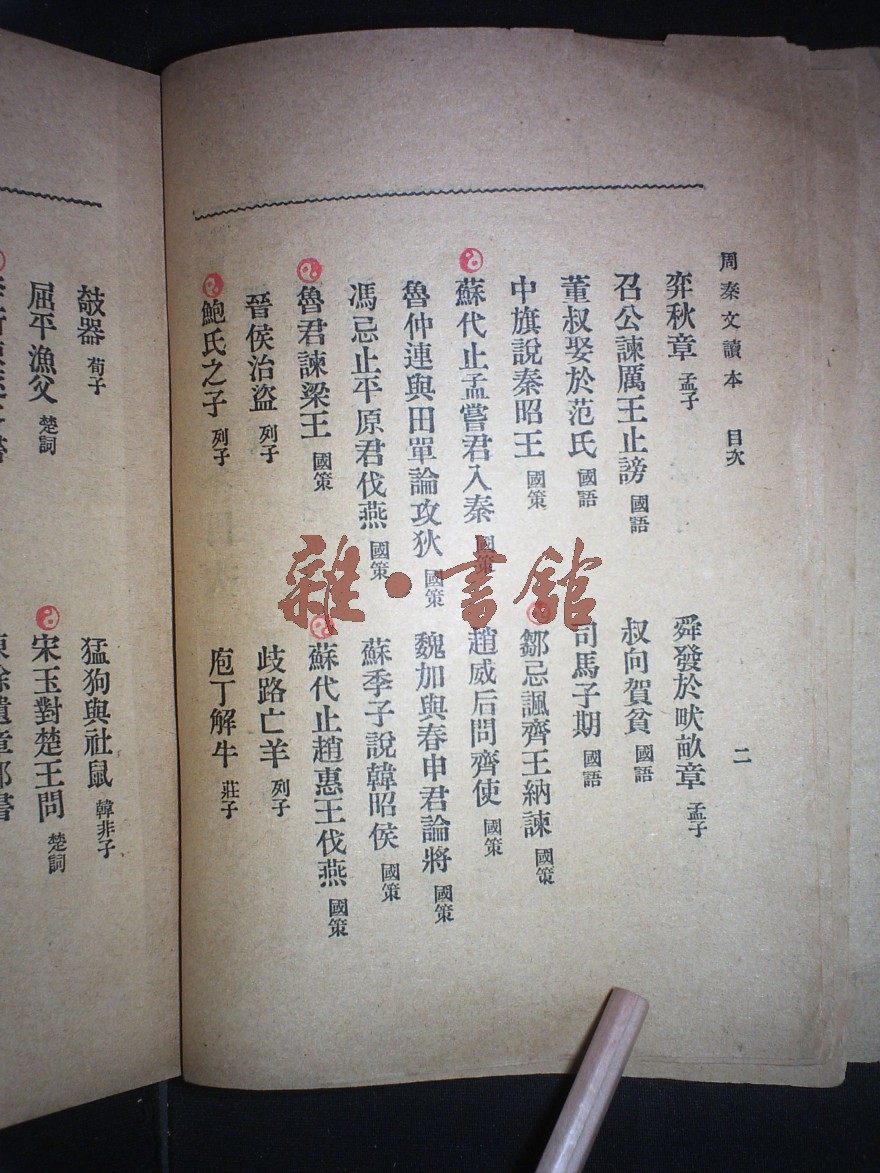 周秦文讀本 目次 二
弈秋章 孟子
舜發於畎畝章 孟子
召公諫厲王止謗 國語
叔向賀貧 國語
董叔娶於范氏 國語
司馬子期 國語
中旗說秦昭王 國策
鄒忌諷齊王納諫 國策
蘇代止孟嘗君入秦 國策
趙威后問齊使 國策
魯仲連與田單論攻狄 國策
魏加與春申君論將 國策
馮忌止平原君伐燕 國策
蘇季子說韓昭侯 國策
魯君諫梁王 國策
蘇代止趙惠王伐燕 國策
晉侯治盜 列子
歧路亡羊 列子
鮑氏之子 列子
庖丁解牛 莊子
攲器 荀子
猛狗與社鼠 韓非子
屈平漁父 楚詞
宋玉對楚王問 楚詞
雜·書館